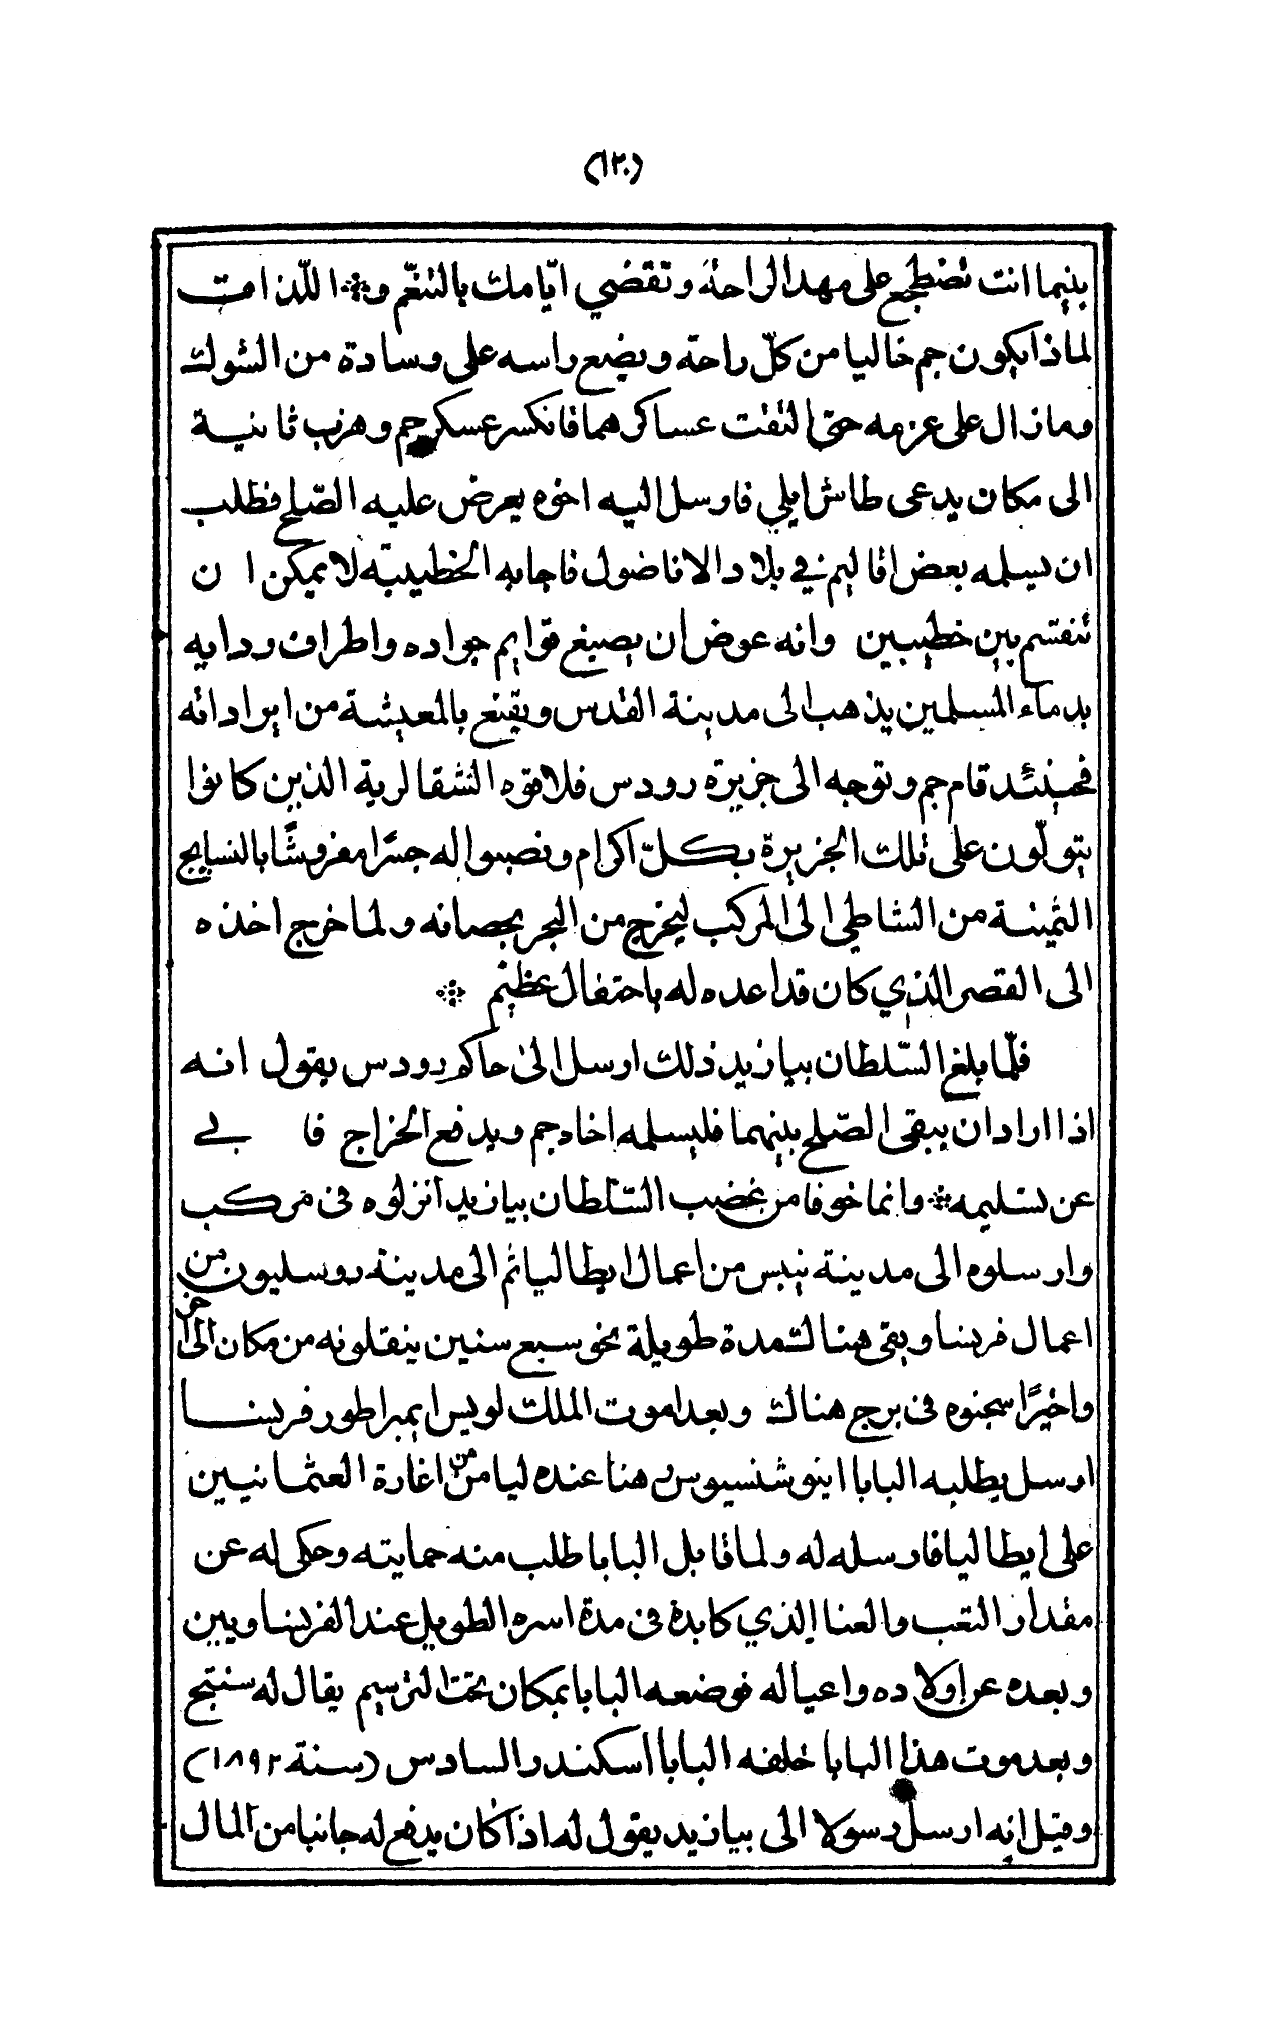 (١٢٠)
بينما انت تضطجع على مهد الراحة وتقضي ايّامك بالتنعّم و* اللّذامت
لماذا يكون جم خاليا من كلّ راحة ويضع راسه على وسادة من الشوك
وما زال على عزمه حتى التقت عساكرهما فانكسر عسكر جم وهرب ثانية
الى مكان يدعى طاش ايلي فارسل اليه اخوه يعرض عليه الصّلح فطلب
ان يسلمه بعض اقاليم في بلاد الاناضول فاجابه الخطيبة لا يمكن ان
تنقسم بين خطيبين وانه عوض ان يصبغ قوايم جواده واطراف ردايه
بدماء المسلمين يذهب الى مدينة القدس ويقنع بالمعيشة من ايراداته
فحينئد قام جم وتوجه الى جزيرة رودس فلاقوه الشقالرية الذين كانوا
يتولّون على تلك الجزيرة بكلّ اكرام ونصبوا له جسرًا مفروشًا بالنسايج
الثمينة من الشاطي الى المركب ليخرج من البحر بحصانه ولما خرج اخذه
الى القصر الذي كان قد اعده له باحتفال عظيم *
فلمّا بلغ السّلطان بيازيد ذلك ارسل الى حاكم رودس يقول انه
اذا اراد ان يبقى الصّلح بينهما فليسلمه اخاه جم ويدفع الخراج فا بى
عن تسليمه * وانما خوفا من غضب السّلطان بيازيد انزلوه فى مركب
وارسلوه الى مدينة نيس من اعمال ايطاليا ثم الى مدينة روسليون من
اعمال فرنسا وبقي هناك مدة طويلة نحو سبع سنين ينقلونه من مكان الى اخر
واخيرًا سجنوه فى برج هناك وبعد اموت الملك لويس ايمبراطور فرنسا
ارسل يطلبه البابا اينوشنسيوس رهنا عنده ليامن من اغارة العثمانيين
على ايطاليا فارسله له ولما قابل البابا طلب منه حمايته وحكى له عن
مقدار التعب والعنا الذي كابده فى مدة اسره الطويل عند الفرنساويين
وبعده عن اولاده واعياله فوضعه البابا بمكان تحت الترسيم يقال له سنتج
وبعد موت هذا البابا خلفه البابا اسكندر السادس (سنة ١٨٩٢)
وقيل انه ارسل رسولا الى بيازيد يقول له اذا كان يدفع له جانبا من المال